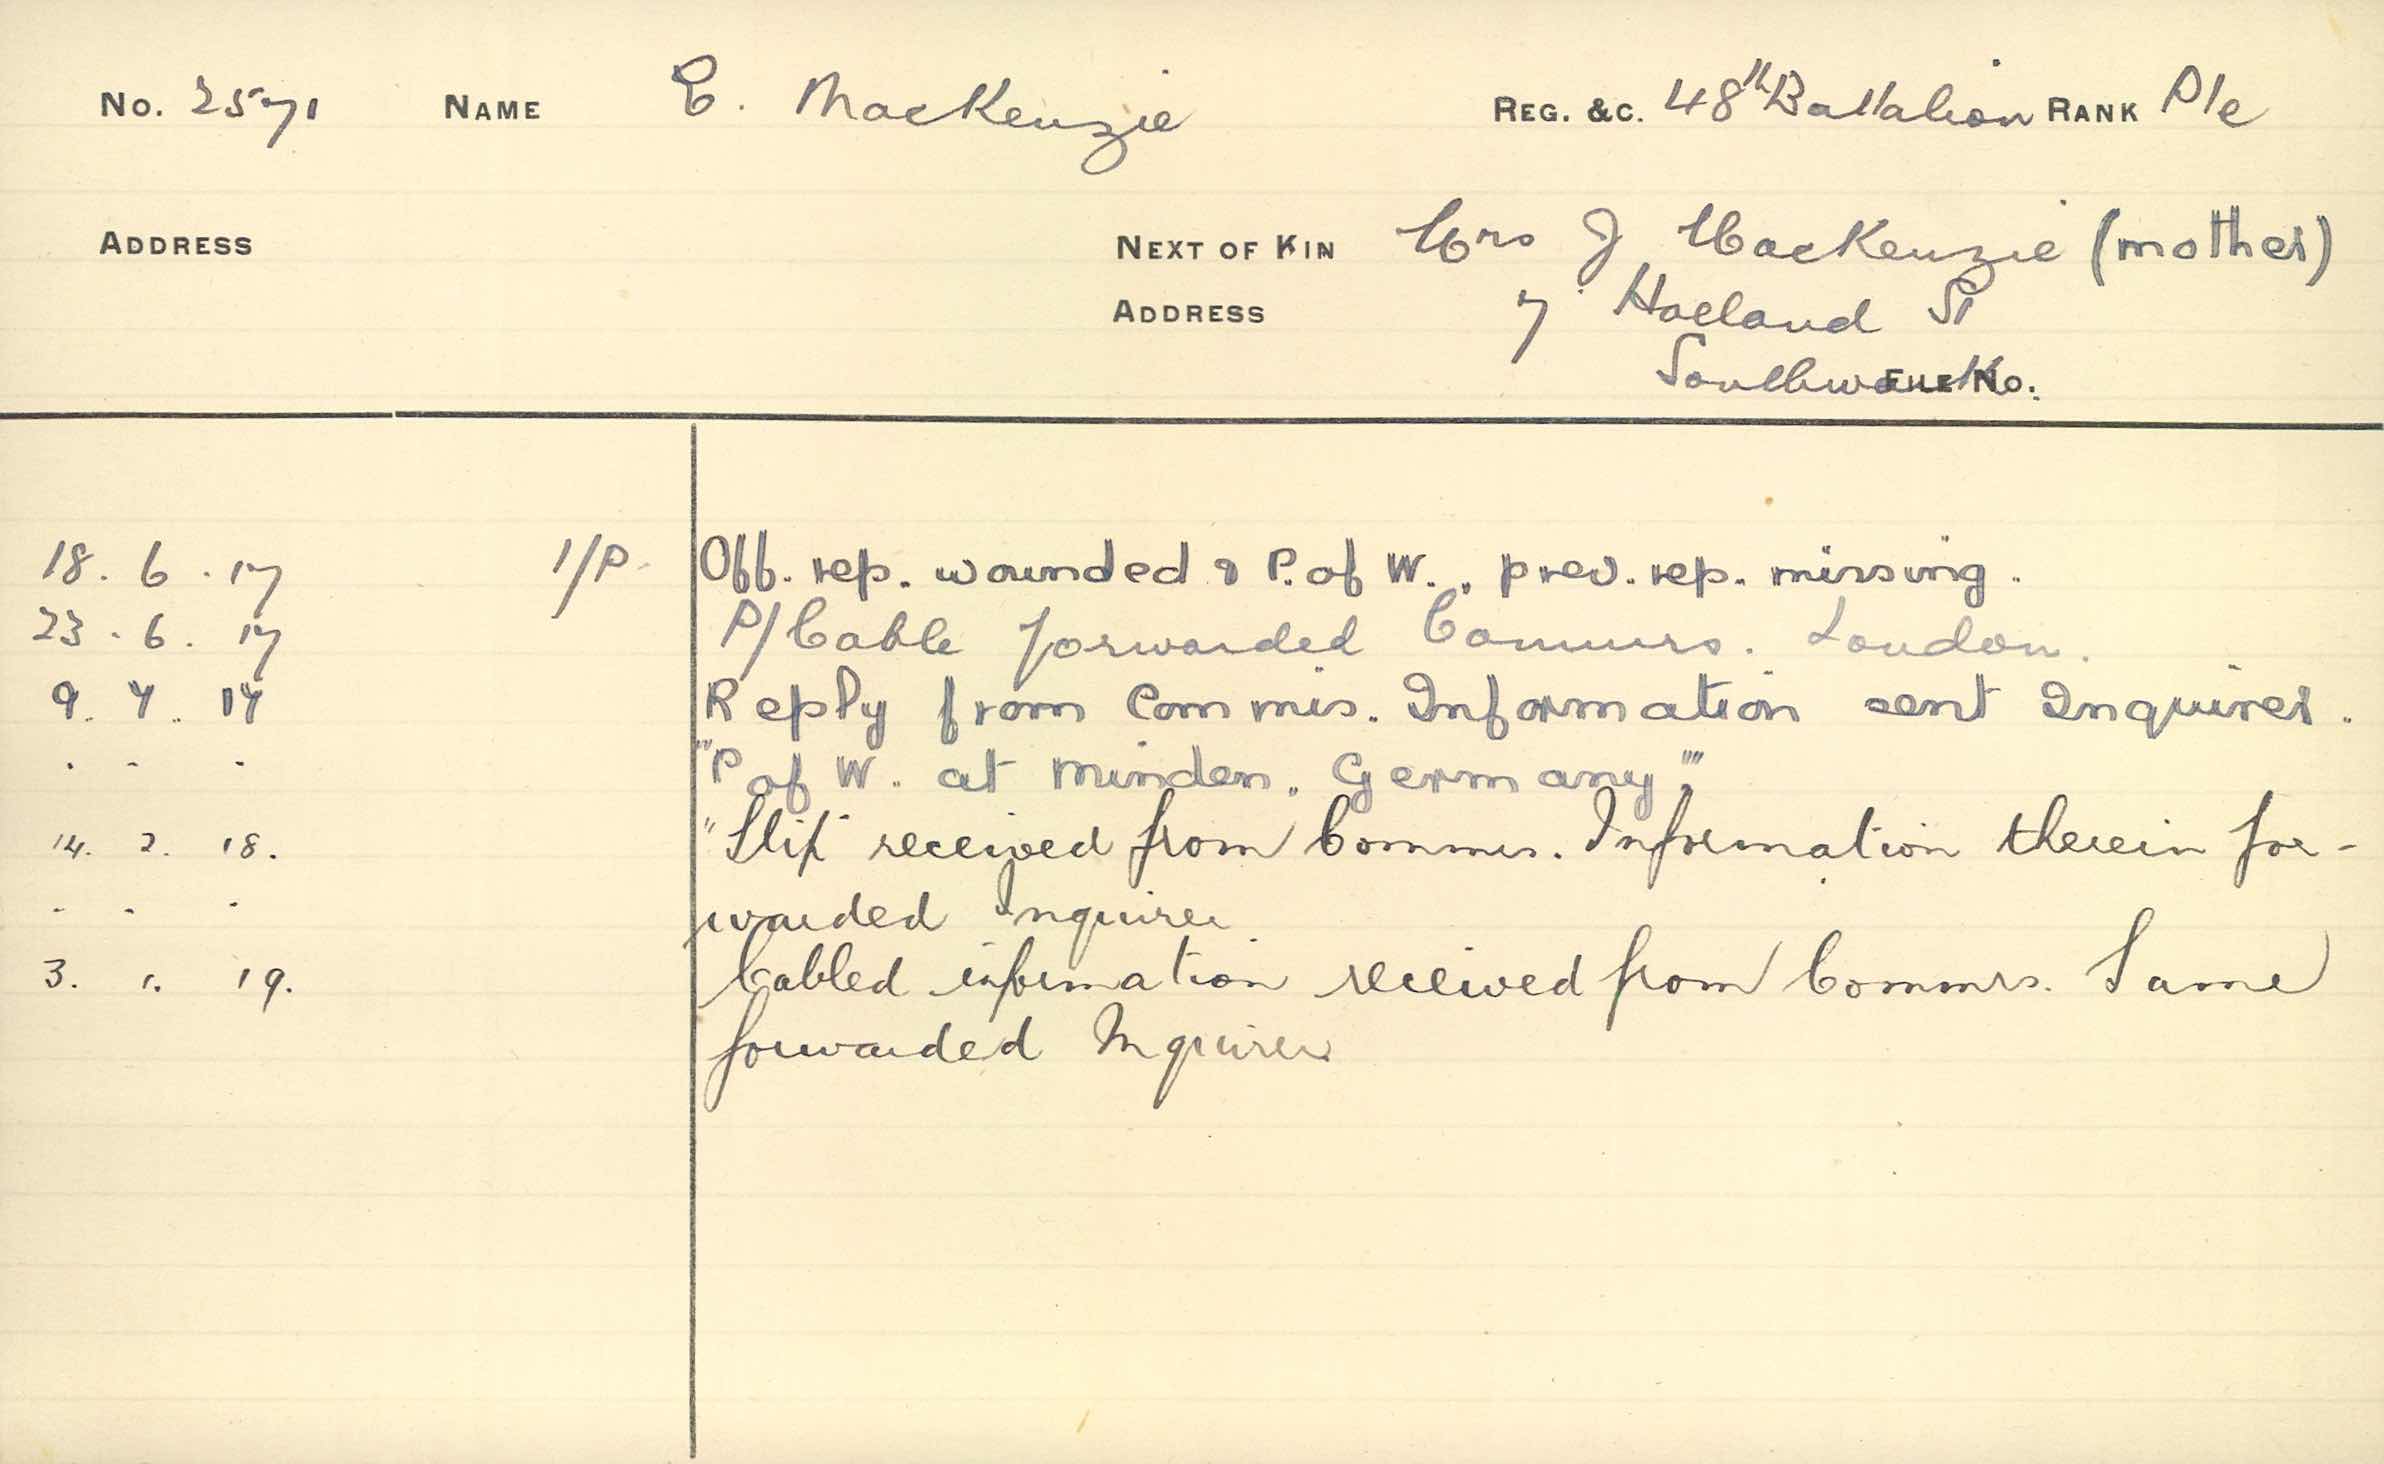 No. 2571 NAME E. MacKenzie REG. &C. 48th Battalion RANK Pte
ADDRESS NEXT OF KIN Mrs J MacKenzie (mother)
ADDRESS 7 Holland St
Southwark FILE No.
18. 6. 17 1/P. Off. rep. wounded & P. of W., prev. rep. missing.
23. 6. 17 P/Cable forwarded Commrs. London.
9. 7. 17 Reply from Commis. Information sent Inquirer.
" " " "P of W. at Minden, Germany"
14. 2. 18. "Slip" received from Commrs. Information therein for-
" " " warded Inquirer
3. 1. 19. Cabled information received from Commrs. Same
forwarded Inquirer